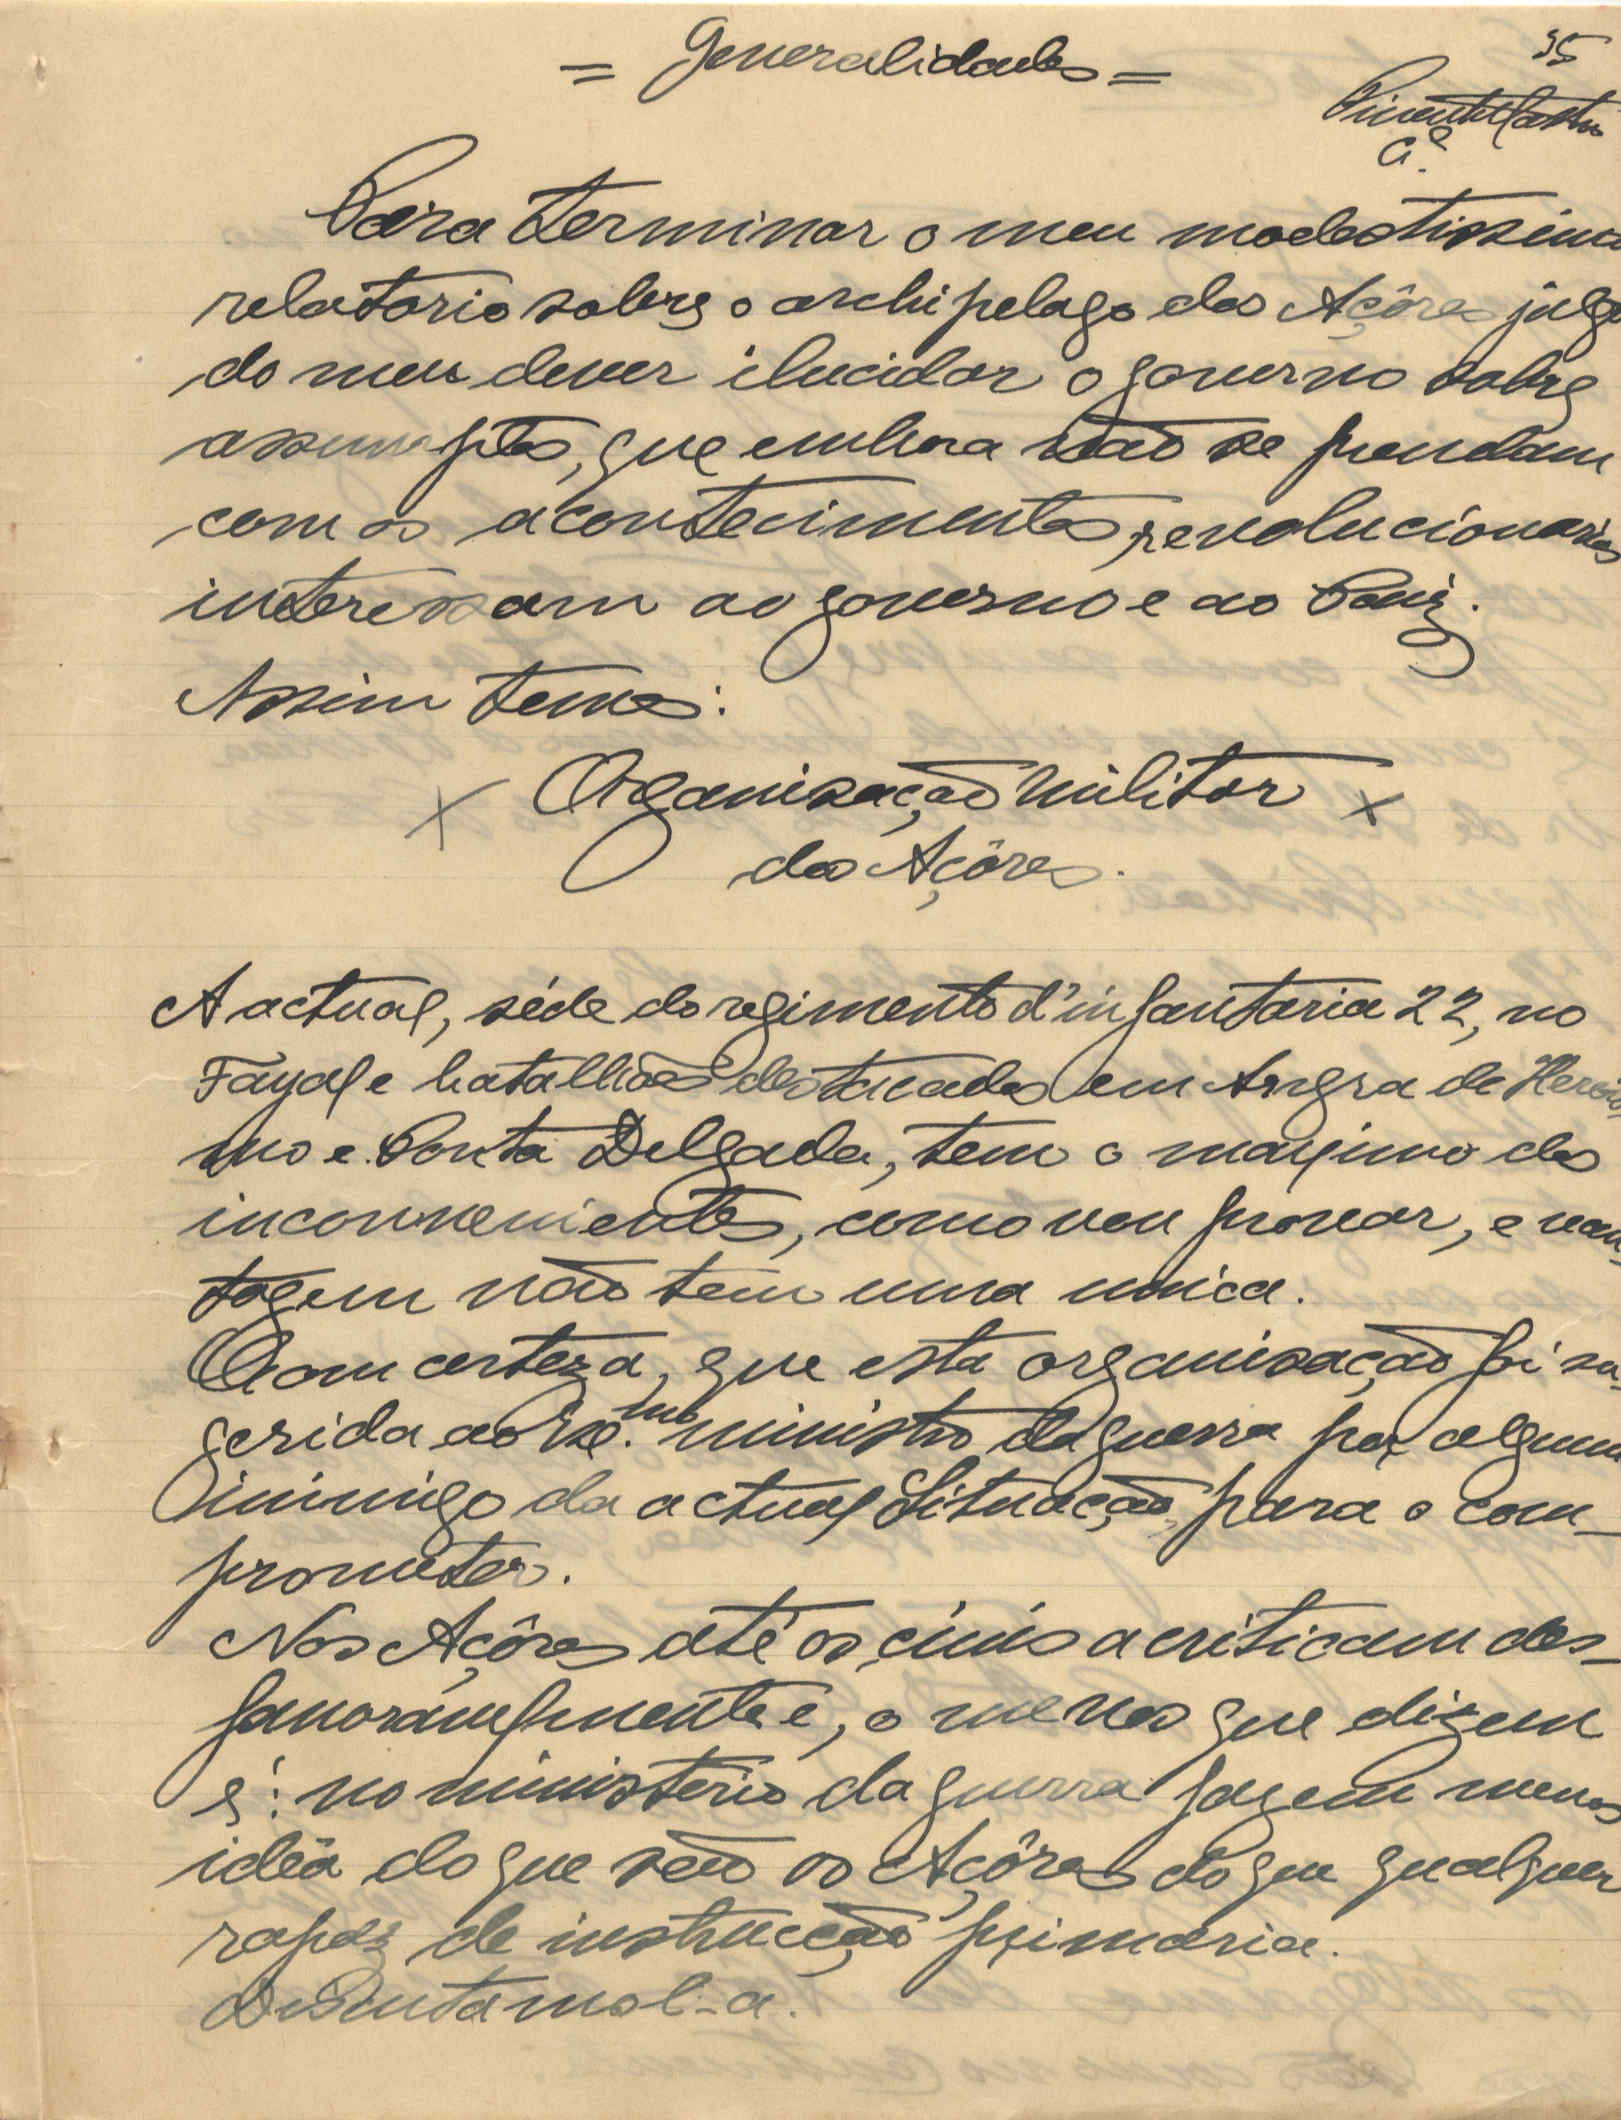 = Generalidades =
35
Pimentel Castro
Para terminar o meu modestissimo
relatorio sobre o archipelago dos Açôres julgo
do meu dever ilucidar o governo sobre
assumptos, que embora não se prendam
com os acontecimentos revolucionarios
interessam ao governo e ao Paiz.
Assim temos:
x Organisação militar x
dos Açôres.
A actual, séde do regimento d'infantaria 22, no
Fayal e batalhões destacados em Angra de Herois,
mo e Ponta Delgada, tem o maximo dos
inconvenientes, como vou provar, e van,
tagem não tem uma unica.
Com certeza, que esta organisação foi su-
gerida ao Ex.mo ministro da guerra por algum
inimigo da actual Situação, para o com-
prometer.
Nos Açôres até os civis a criticam des-
favoravelmente e, o menos que dizem
é: no ministerio da guerra fazem menos
idêa do que são os Açôres do que qualquer
rapaz de instrucção primaria.
Discutamol-a.